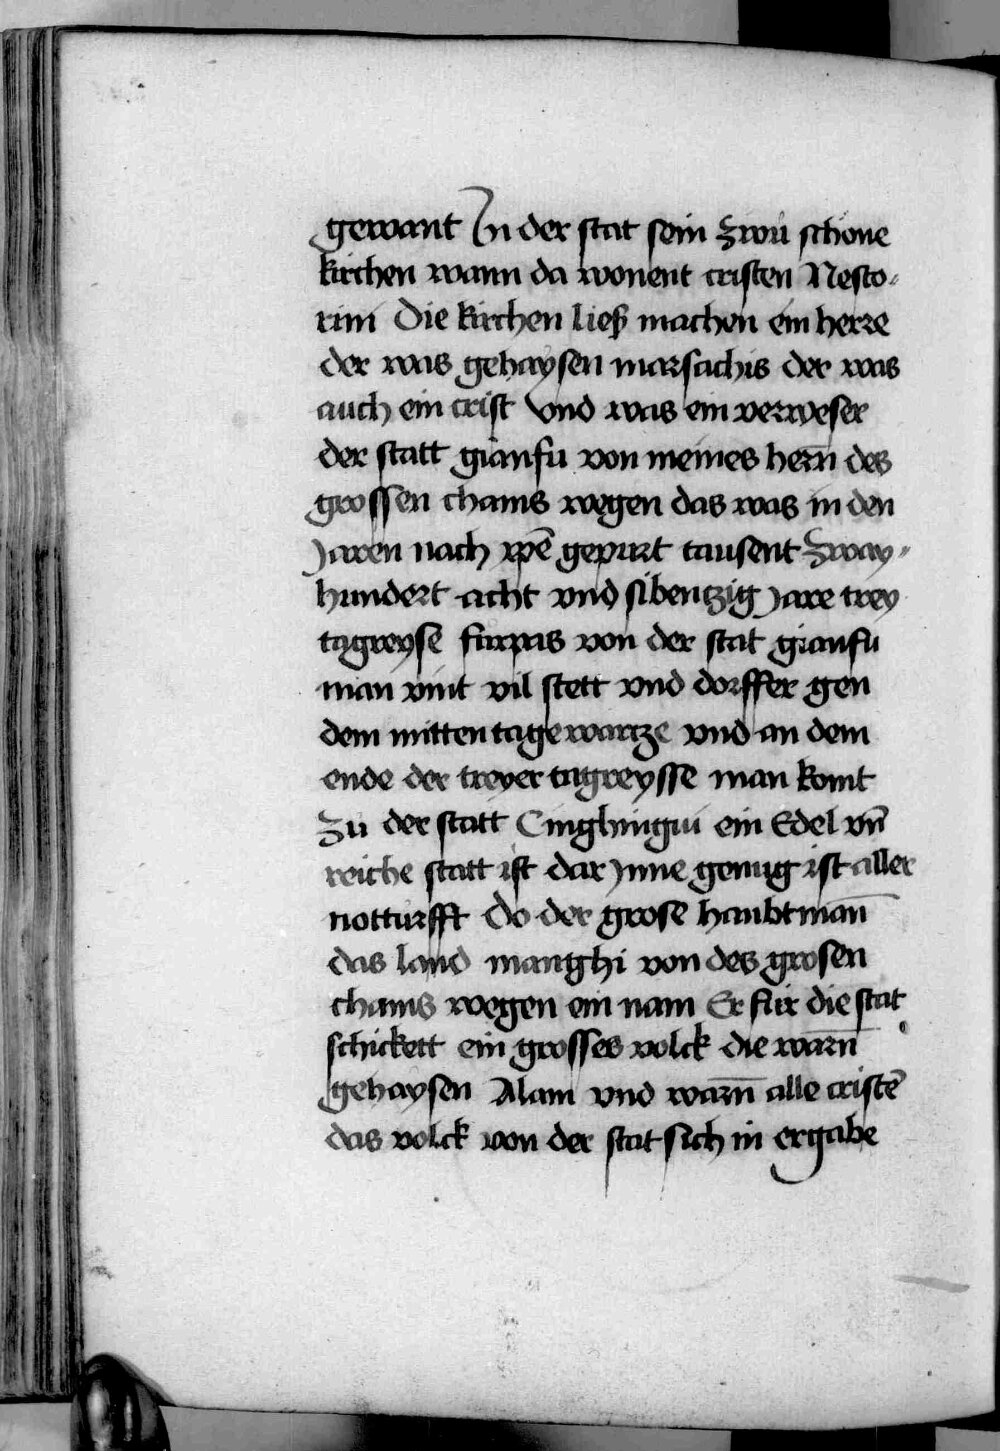 gewant In der stat sein zwu schone
kirchen wann da wonent cristen Nesto-
rini Die kirchen ließ machen ein herre
der was gehaysen marsachis der was
auch ein crist vnd was ein verweser
der statt gianfu von meines herñ des
grossen chams wegen das was in den
Jaren nach xpē gepurt tausent zway-
hundert acht vnd sibentzig Jare trey
tagreyse furpas von der stat gianfu
man vint vil stett vnd dorffer gen
dem mitten tage wartze vnd an dem
ende der treyer tagreysse man komt
zu der statt Cinghingui ein Edel vñ
reiche statt ist dar Inne genug ist aller
notturfft Do der grose haubtmañ
das land manghi von des grosen
chams wegen ein nam Er fur die stat
schickett ein grosses volck die warñ
gehaysen Alani vnd warñ alle cristē
das volck von der stat sich in ergabe